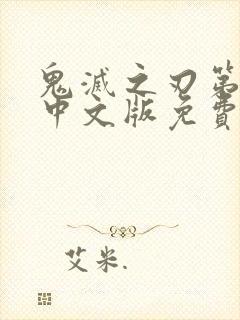 鬼滅之刃第
中文版免費
艾米.